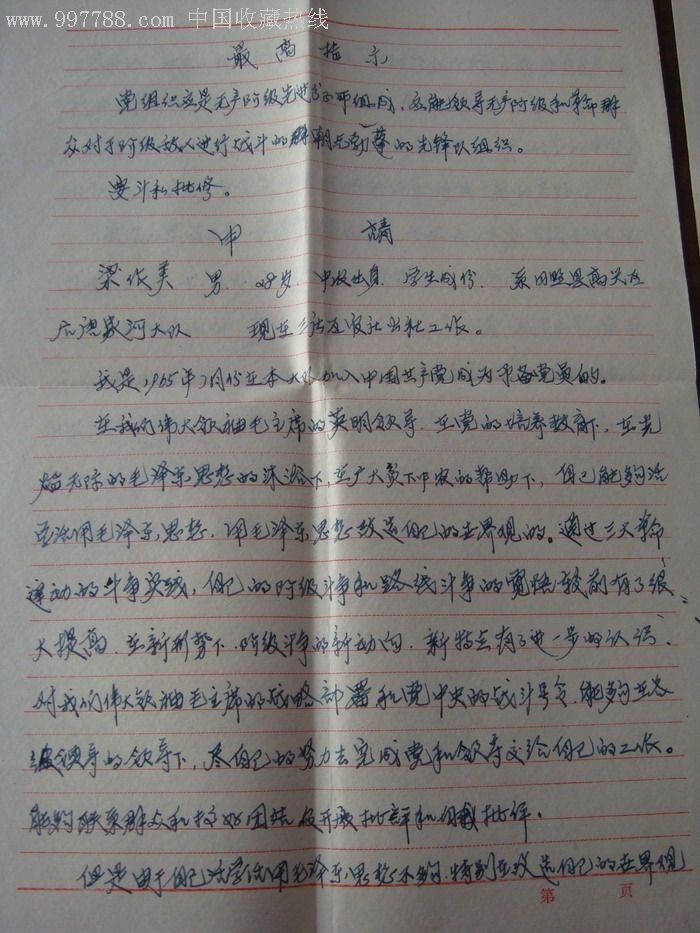 www.997788.com 中国收藏热线
最高指示
党组织应是无产阶级先进分子所组成，应能领导无产阶级和革命群
众对于阶级敌人进行战斗的朝气勃蓬的先锋队组织。
要斗私批修。
申 请
梁作美 男 28岁 中农出身 学生成份 系日照县高兴区
河大队 现在 社 工作。
我是1965年7月份在本大队加入中国共产党成为予备党员的。
在我们伟大领袖毛主席的英明领导，在党的培养教育下，在光
焰无际的毛泽东思想的沐浴下，在广大贫下中农的帮助下，自己能够活
学活用毛泽东思想，用毛泽东思想改造自己的世界观的。通过三大革命
运动的斗争实践，自己的阶级斗争和路线斗争的觉悟较前有了很
大提高，在新形势下，阶级斗争的新动向，新特点有了进一步的认识，
对我们伟大领袖毛主席的战略部署和党中央的战斗号令，能够在各
级领导的领导下，尽自己的努力去完成党和领导交给自己的工作。
能够联系群众和搞好团结及开展批评和自我批评。
但是由于自己活学活用毛泽东思想不够，特别在改造自己的世界观
第 页